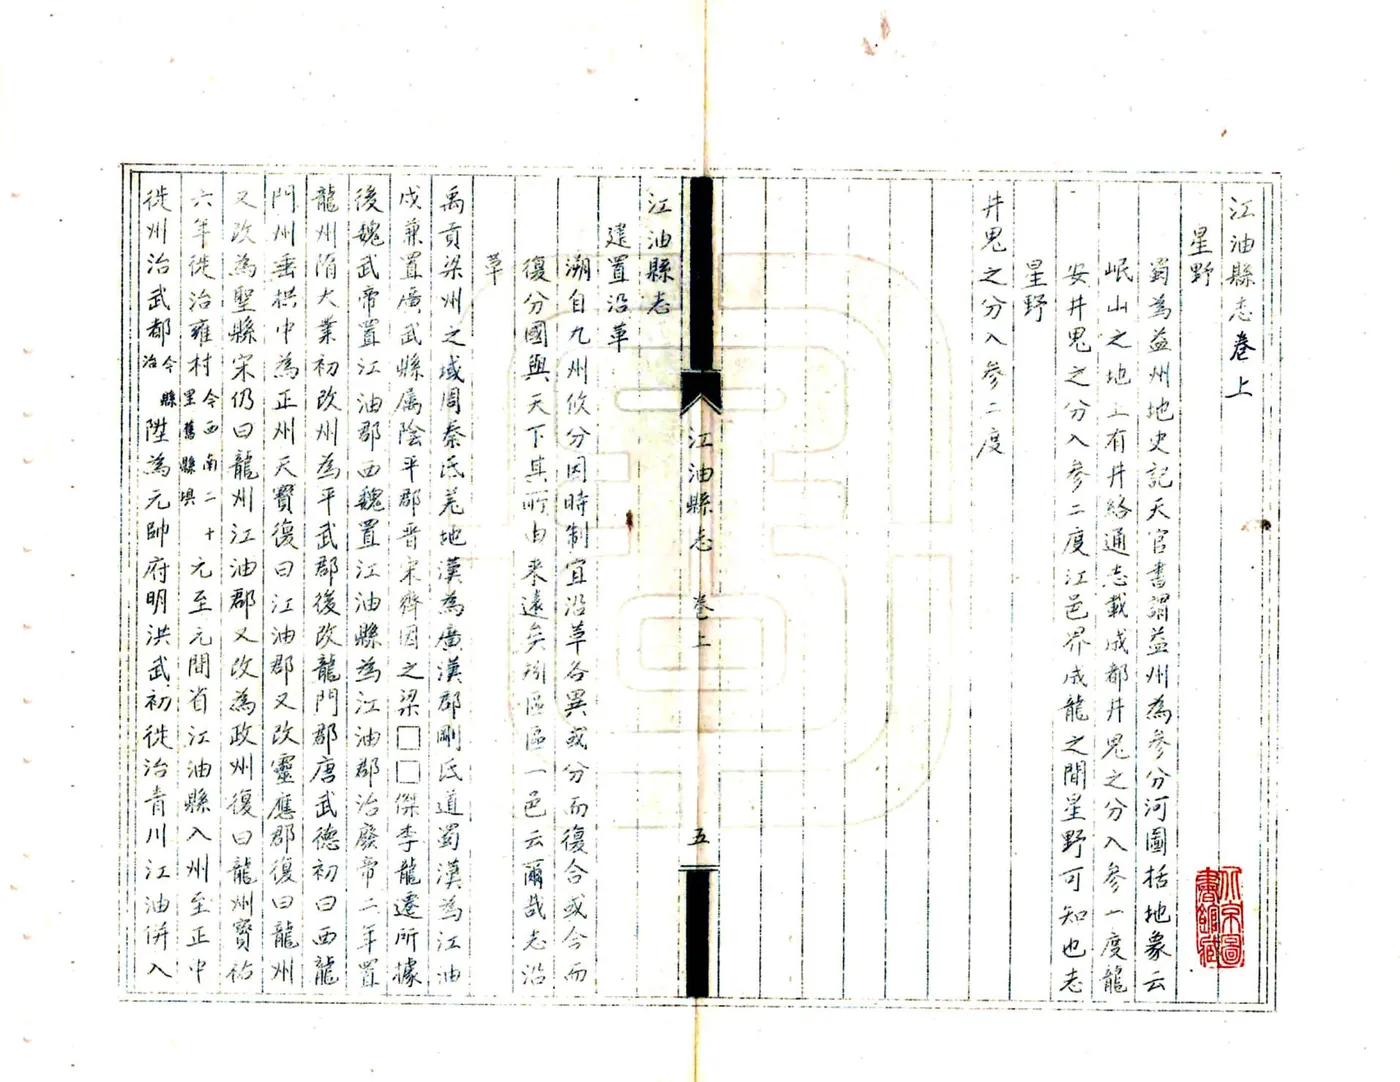 江油縣志卷上
星野
蜀為益州地史記天官書謂益州為參分河圖括地象云
岷山之地上有井絡通志載成都井鬼之分入參一度龍
安井鬼之分入參二度江邑界成龍之間星野可知也志
星野
井鬼之分入參二度
江油縣志 卷上 五
江油縣志
建置沿革
溯自九州攸分因時制宜沿革各異或分而復合或合而
復分國與天下其所由来遠矣矧區區一邑云爾哉志沿
革
禹貢梁州之域周秦氐羌地漢為廣漢郡剛氐道蜀漢為江油
戍兼置廣武縣属陰平郡晋宋齊因之梁□□傑李龍遷所據
後魏武帝置江油郡西魏置江油縣為江油郡治廢帝二年置
龍州隋大業初改州為平武郡後改龍門郡唐武德初曰西龍
門州垂拱中為正州天寶復曰江油郡又改靈應郡復曰龍州
又改為聖縣宋仍曰龍州江油郡又改為政州復曰龍州寶祐
六年徙治雍村今西南二十里舊縣垻元至元間省江油縣入州至正中
徙州治武都今縣治陞為元帥府明洪武初徙治青川江油併入